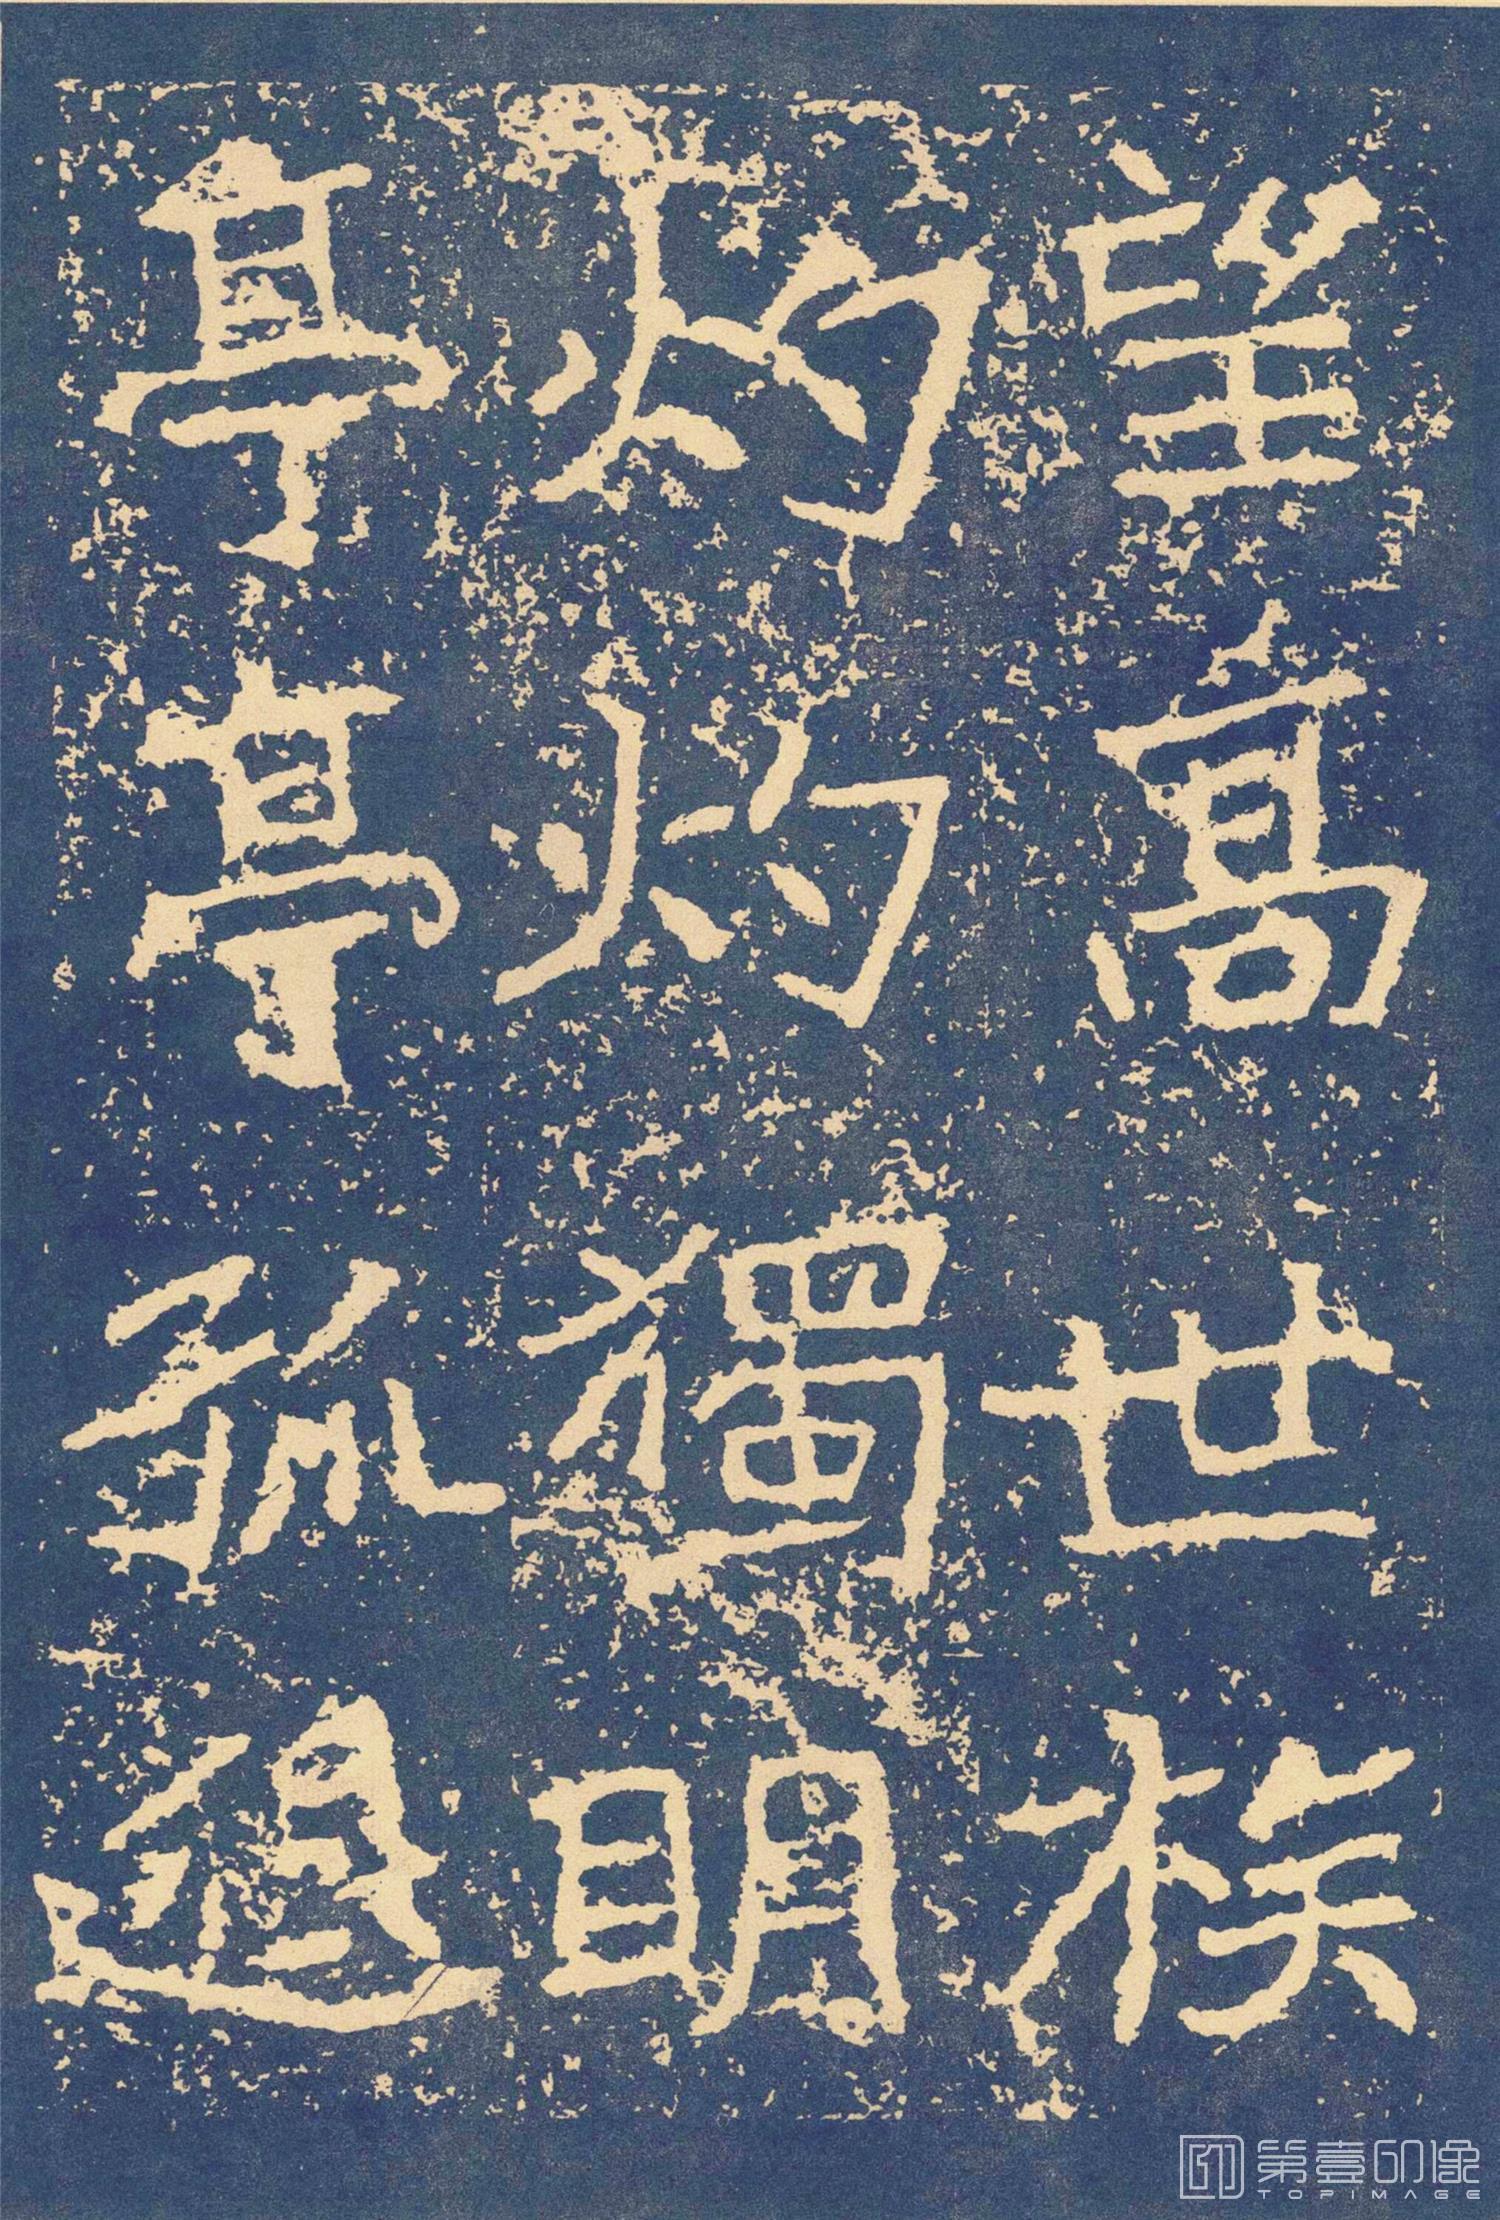 望高世族
灼灼獨明
亭亭孤
第壹印像
TOPIMAGE